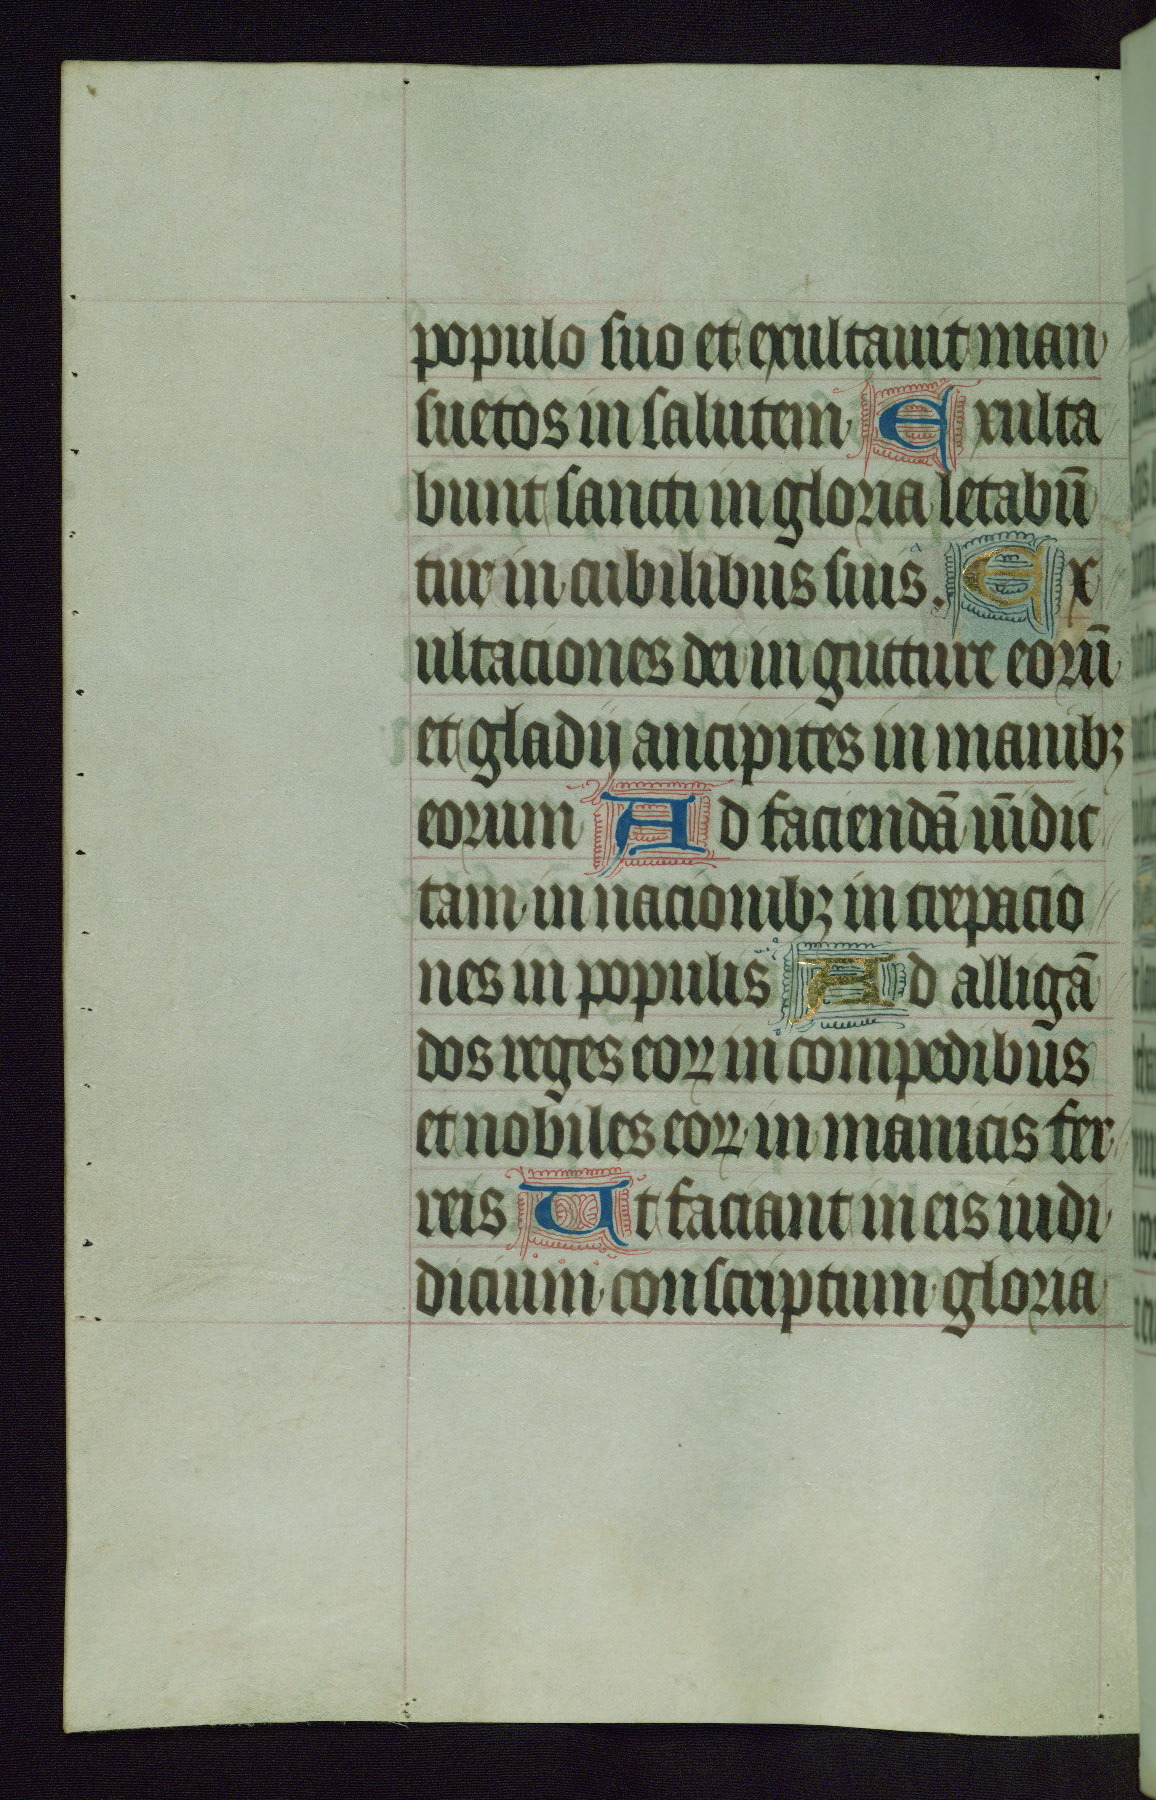 populo suo et exultauit man
suetos in salutem Exulta
bunt sancti in gloria letabū
tur in cubilibus suis. Ex
ultaciones dei in gutture eorū
et gladij ancipites in manibꝫ
eorum Ad faciendā uīdic
tam in nacionibꝫ in crepacio
nes in populis Ad alligā
dos reges eoꝝ in compedibus
et nobiles eoꝝ in manicis fer
reis Ut faciant in eis iudi
dicium conscriptum gloria